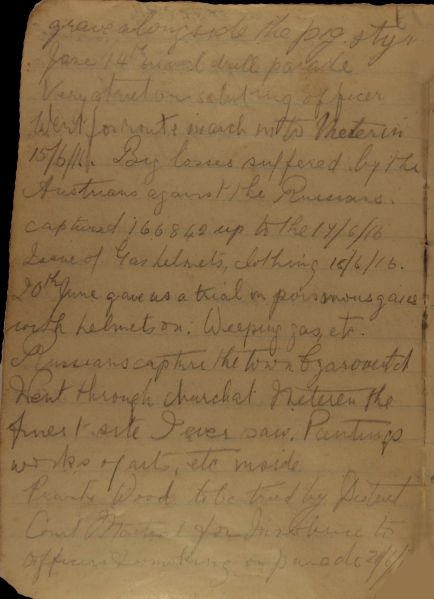 grave alongside the pig styr
June 14th usual drill parade
Very strict on saluting officer
Went for route march into Meteren
15/6/16. Big losses suffered by the
Austrians against the Russians.
captured 166842 up to the 17/6/16
Issue of Gas helmets, clothing 15/6/16.
20th June gave us a trial on poisonous gases
with helmets on. Weeping gas, etc.
Russians capture the town Czarovitch
Went through church at Meteren the
finest site I ever saw. Paintings
works of arts, etc inside
Private Wood to be tried by District
Court Martial for Insolence to
officer & smoking on parade